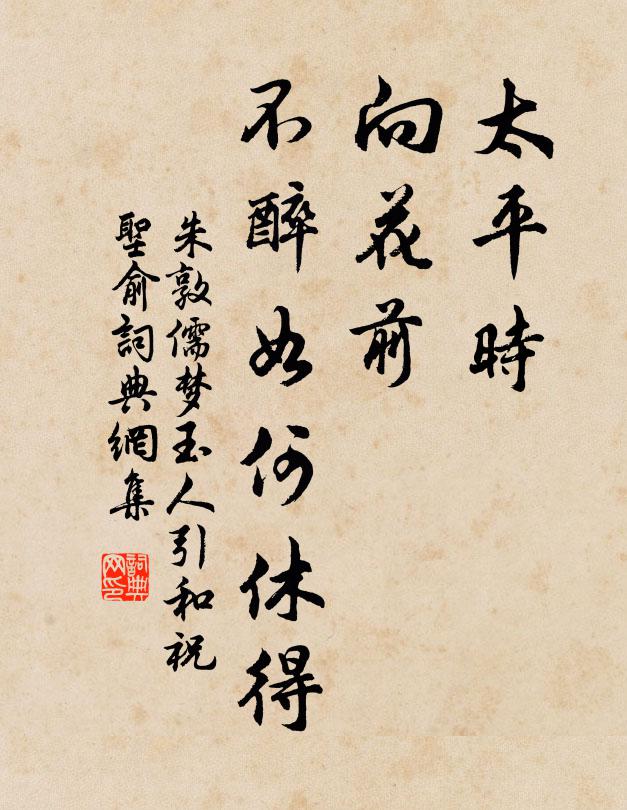 太平時
向花前
不醉如何休得
朱敦儒梦玉人引和祝
聖俞詞典網集
詞典
网印